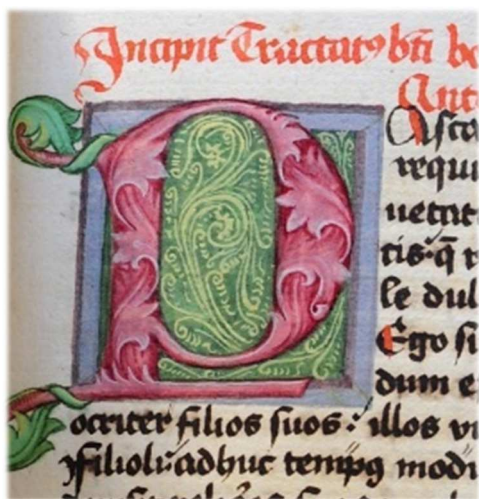 Incipit Tractatꝰ bti be
P
Asto
requi
uetat
tis: q̄ r
le dul
Ego si
dum e
ocriter filios suos: illos vi
filioli: adhuc tempꝰ modi